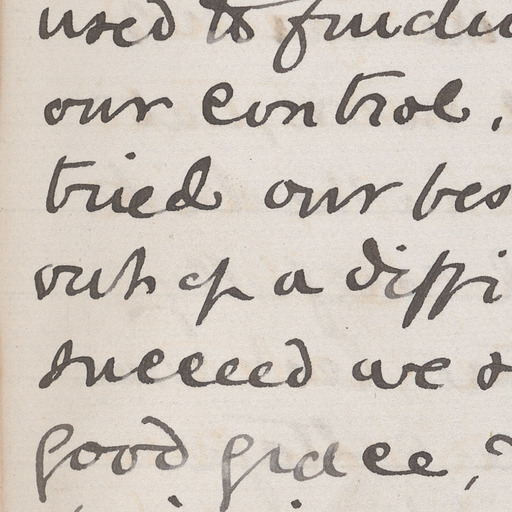 used to findi
our control,
tried our bes
out of a diffi
succeed we s
good grace,